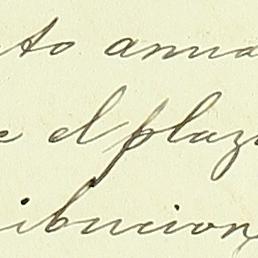 to anua
e el plaz
ibucion